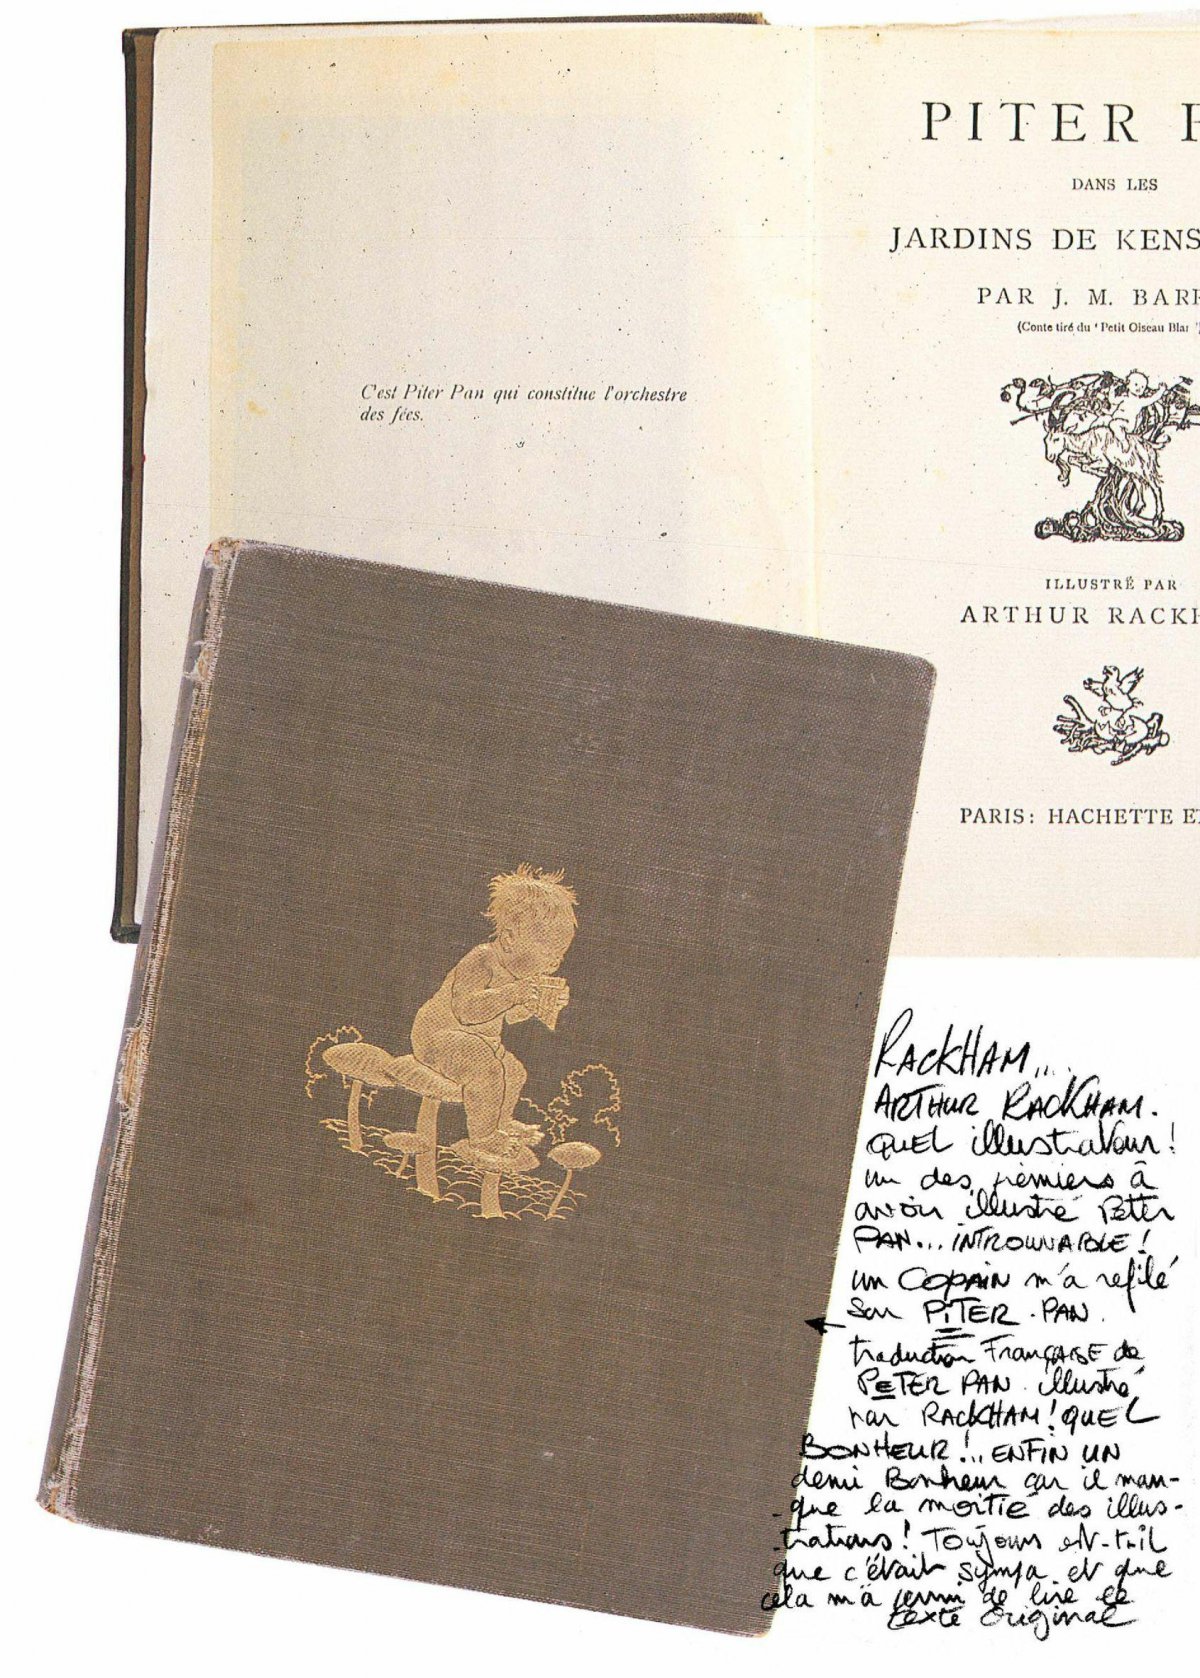 C'est Piter Pan qui constitue l'orchestre
des fées.
PITER P
DANS LES
JARDINS DE KENS
PAR J. M. BARR
(Conte tiré du 'Petit Oiseau Blan
ILLUSTRÉ PAR
ARTHUR RACKH
PARIS: HACHETTE ET
RACKHAM...
ARTHUR RACKHAM.
QUEL illustrateur!
un des premiers à
avoir illustré Peter
PAN... INTROUVABLE!
un COPAIN m'a refilé
son PITER-PAN.
traduction FRANÇAISE de
PETER PAN illustré
par RACKHAM! QUEL
BONHEUR!.. ENFIN UN
demi Bonheur car il man-
-que la moitié des illus-
-trations! Toujours est-t-il
que c'était sympa et que
cela m'a permi de lire le
texte original